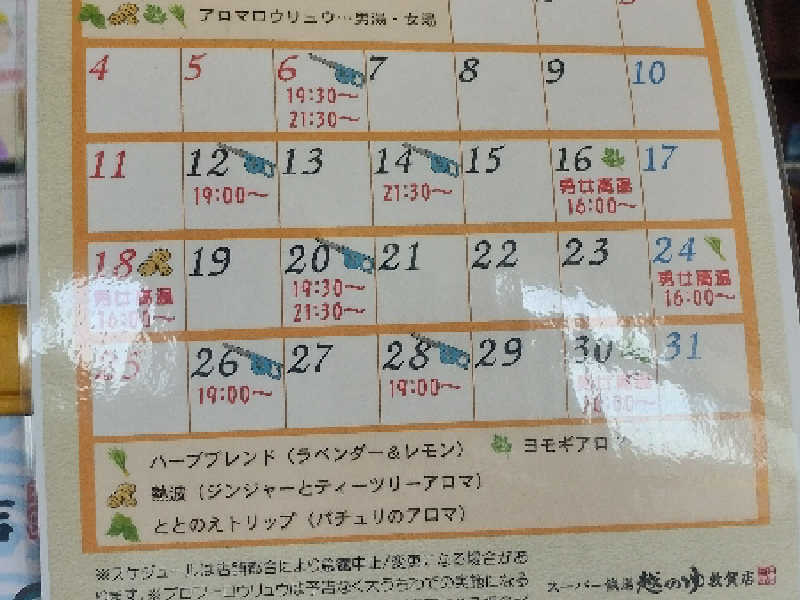 アロマロウリュウ…男湯・女湯
4 5 6 7 8 9 10
19:30〜
21:30〜
11 12 13 14 15 16 17
19:00〜 21:30〜 男女高温
16:00〜
18 19 20 21 22 23 24
男女高温 19:30〜 男女高温
16:00〜 21:30〜 16:00〜
25 26 27 28 29 30 31
19:00〜 19:00〜 男女高温
16:00〜
ハーブブレンド（ラベンダー＆レモン） ヨモギアロ
熱波（ジンジャーとティーツリーアロマ）
ととのえトリップ（パチュリのアロマ）
※スケジュールは店舗都合により急遽中止/変更になる場合があ
ります。※ブロワーロウリュウは予告なく大うちわでの実施になる
スーパー銭湯 越のゆ 敦賀店